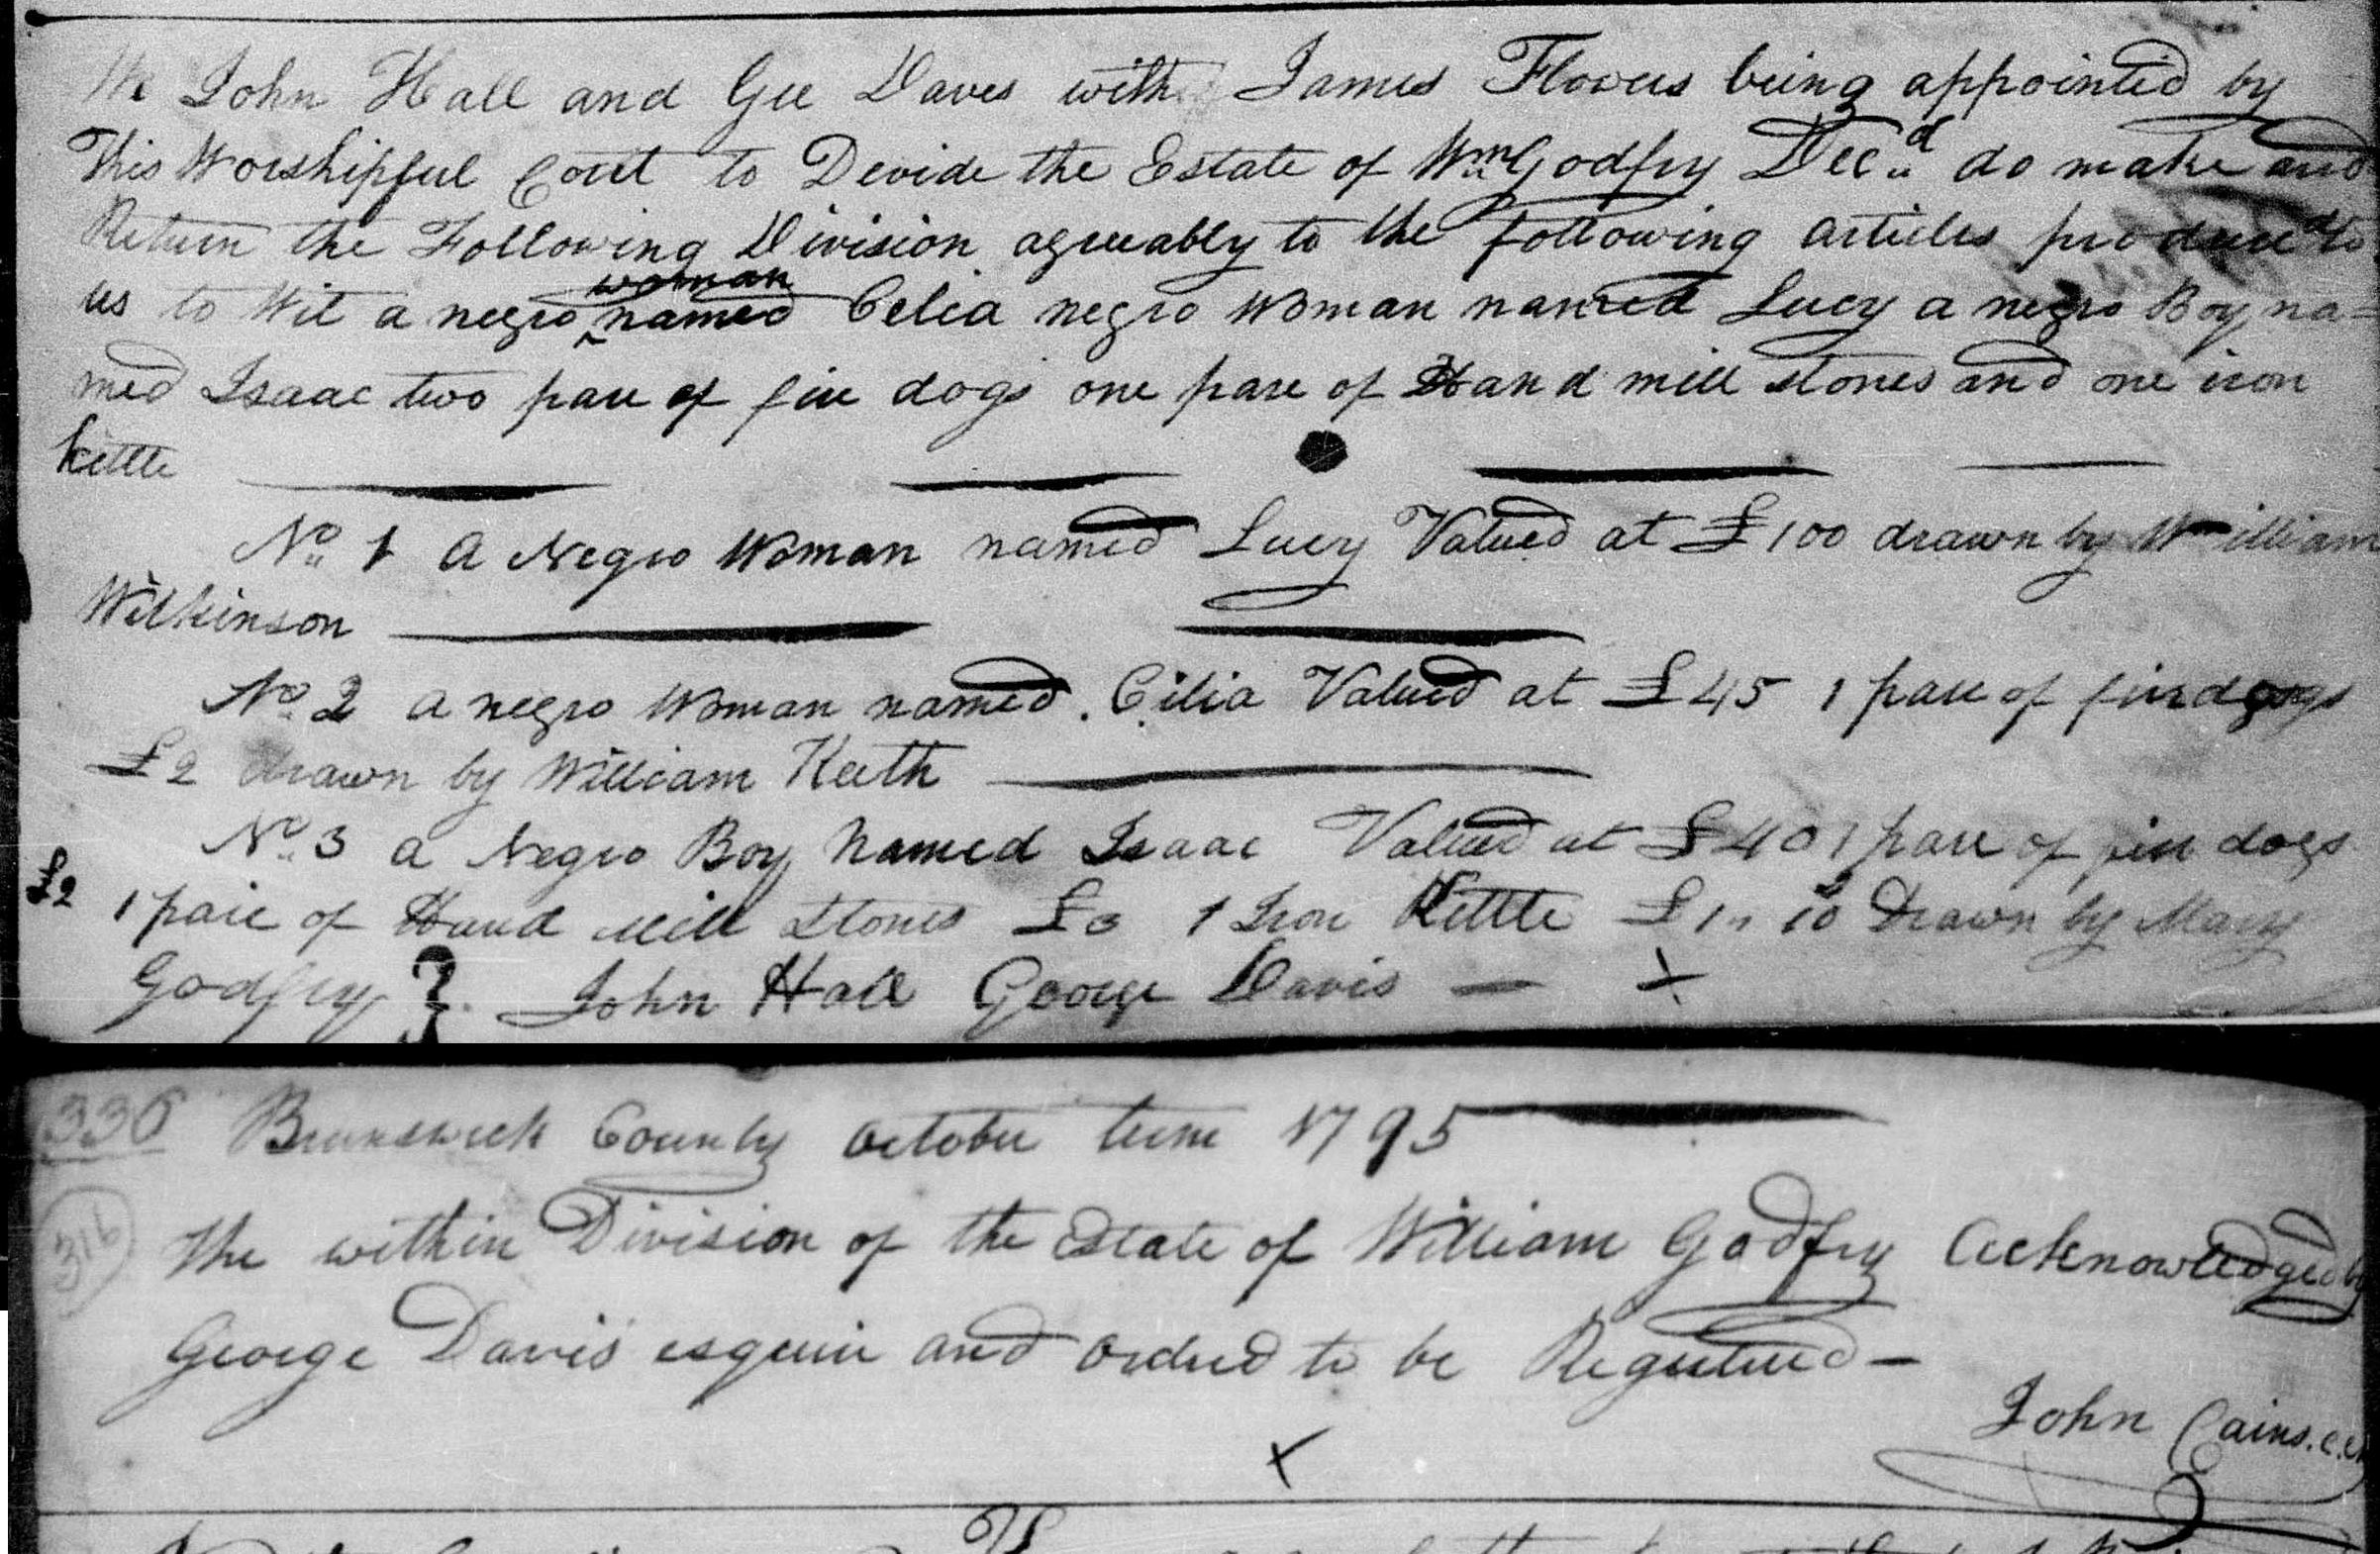 We John Hall and Gee Daves with James Flowers being appointed by
This Worshipful Cort to Devide the Estate of Wm Godfry Decd do make and
Return the Following Division agreeably to the following articles produced to
us to Wit a negro woman named Celia negro Woman named Lucy a negro Boy na=
med Isaac two pare of fire dogs one pare of Hand mill stones and one iron
kettle
No 1 A Negro Woman named Lucy Valued at £100 drawn by William
Wilkinson
No 2 a negro Woman named Cilia Valued at £45 1 pare of fire dogs
£2 drawn by William Keith
No 3 a Negro Boy Named Isaac Valued at £40 1 pare of fire dogs
£2 1 paie of Hand Mill Stones £3 1 Iron Kettle £1 " 10 Drawn by Mary
Godfry } John Hall George Davis — x
336 Brunswick County October term 1795
316 The within Division of the Estate of William Godfry Acknowledged by
George Davis esquire and ordred to be Registured —
John Cains. c.c.
x